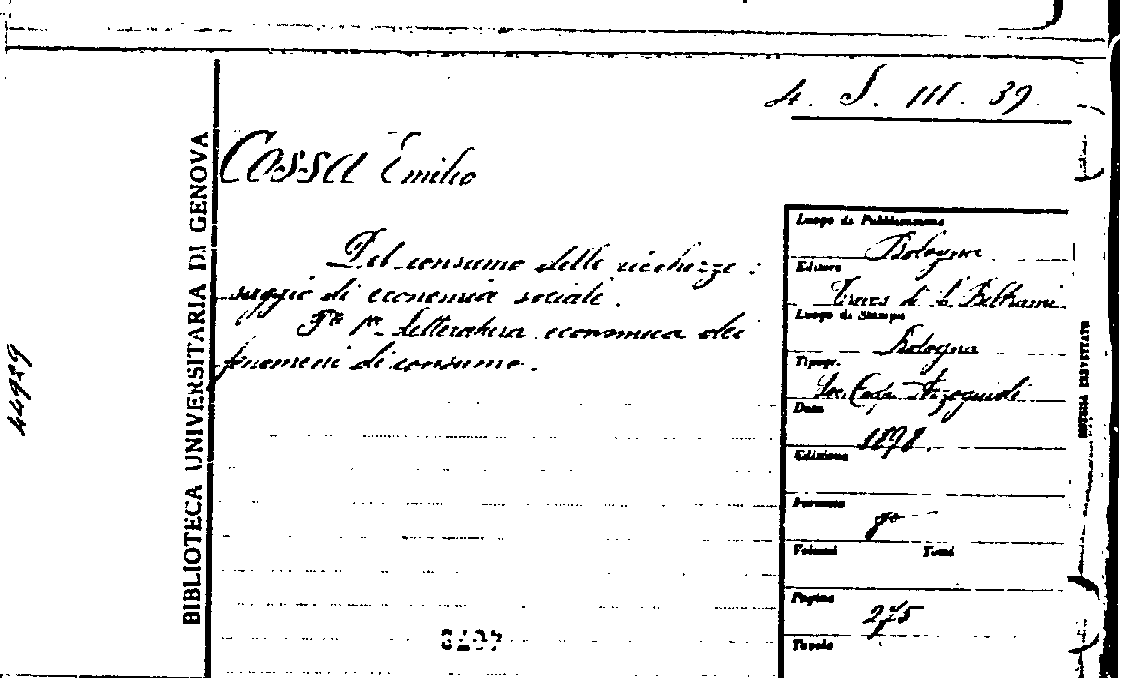 4. S. III. 39
COSSA Emilio
Del consumo delle ricchezze :
saggio di economia sociale.
Pte 1a Letteratura economica dei
fenomeni di consumo.
BIBLIOTECA UNIVERSITARIA DI GENOVA
44929
Luogo di Pubblicazione
Bologna
Editore
Treves di L. Beltrami
Luogo di Stampa
Bologna
Tipogr.
Soc. Coop. Azzoguidi
Data
1898.
Edizione
Formato
8°
Volumi Tomi
Pagine
275
Tavole
SISTEMA BREVETTATO